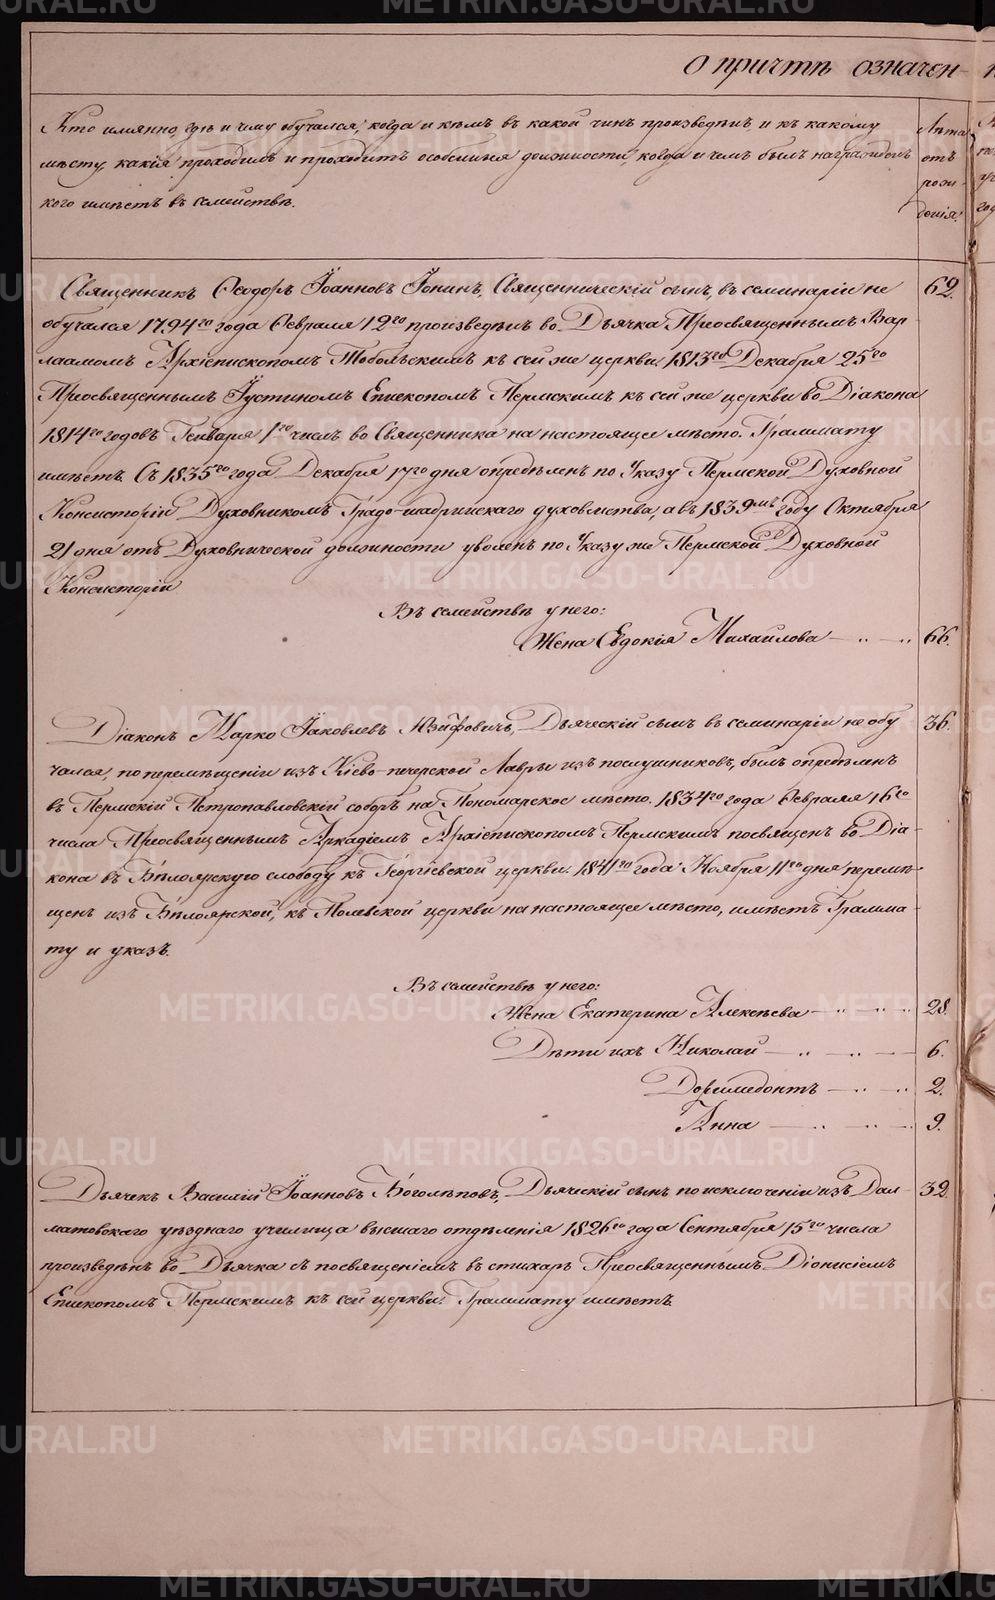 О причтѣ означен-
Кто имянно, гдѣ и чему обучался, когда и кѣмъ въ какой чинъ произведенъ, и къ какому
мѣсту, какія проходилъ и проходитъ особенныя должности, когда и чемъ былъ награжденъ
кого имѣетъ въ семействѣ.
Лѣта
отъ
рож-
денія.
Священникъ Ѳеодоръ Іоанновъ Іонинъ, Священническій сынъ, въ семинаріи не 62.
обучался 1794го года Февраля 12го произведенъ во Дьячка Преосвященнымъ Вар-
лаамомъ Архіепископомъ Тобольскимъ къ сей же церкви. 1813го Декабря 25го
Преосвященнымъ Іустиномъ Епископомъ Пермскимъ къ сей же церкви во Діакона
1814го годовъ Генваря 1го числъ во Священника на настоящее мѣсто. Граммату
имѣетъ. Съ 1835го года Декабря 17го дня опредѣленъ по Указу Пермской Духовной
Консисторіи Духовникомъ Градо-шадринскаго духовенства, а въ 1839мъ году Октября
21 дня отъ Духовнической должности уволенъ по Указу же Пермской Духовной
Консисторіи
Въ семействѣ у него:
Жена Евдокія Михайлова — „ — „ 66.
Діаконъ Марко Іаковлевъ Юзифовичъ, Дьяческій сынъ въ семинаріи не обу 36.
чался, по перемѣщеніи изъ Кіево-печерской Лавры изъ послушниковъ, былъ опредѣленъ
въ Пермскій Петропавловскій соборъ на Пономарское мѣсто. 1834го года Февраля 16го
числа Преосвященнымъ Аркадіемъ Архіепископомъ Пермскимъ посвященъ во Діа-
кона въ Бѣлоярскую слободу къ Георгіевской церкви. 1841го года Ноября 11го дня перемѣ-
щенъ изъ Бѣлоярской, къ Полевской церкви на настоящее мѣсто, имѣетъ Грамма-
ту и указъ.
Въ семействѣ у него:
Жена Екатерина Алексѣева — „ — „ 28.
Дѣти ихъ Николай — „ — „ — 6.
Доримедонтъ — „ — „ 2.
Анна — „ — „ — 9.
Дьячекъ Василій Іоанновъ Боголѣповъ, Дьяческій сынъ по исключеніи изъ Дал- 32.
матовскаго уѣзднаго училища высшаго отдѣленія 1826го года Сентября 15го числа
произведенъ во Дьячка съ посвященіемъ въ стихарь Преосвященнымъ Діонисіемъ
Епископомъ Пермскимъ къ сей церкви. Граммату имѣетъ.
METRIKI.GASO-URAL.RU